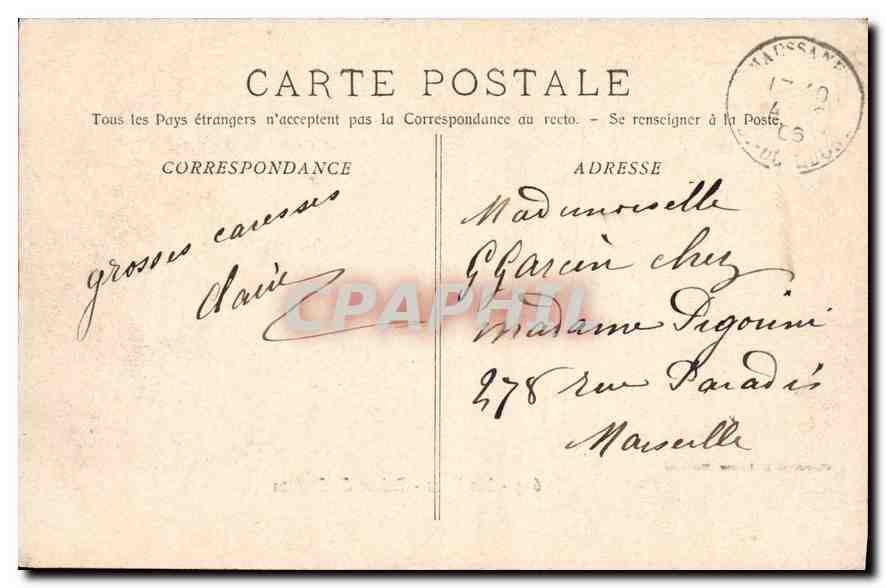 CARTE POSTALE
Tous les Pays étrangers n'acceptent pas la Correspondance au recto. - Se renseigner à la Poste.
MAUSSANE
4
06
CORRESPONDANCE
grosses caresses
Claire
ADRESSE
Mademoiselle
G Garcin chez
Madame Pigonini
278 rue Paradis
Marseille
CPAPHIL